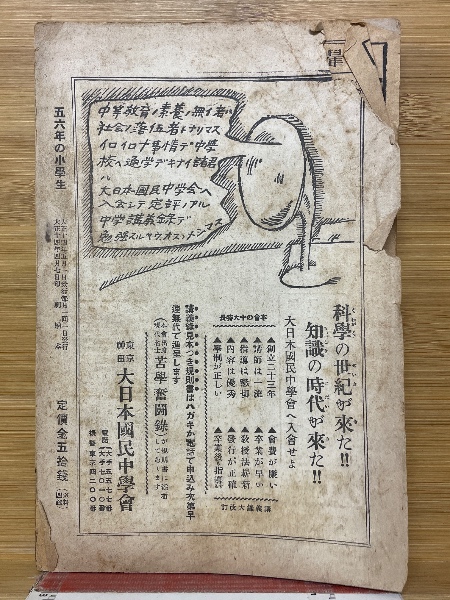 中等教育ノ素養ノ無イ者ハ
社会ノ落伍者トナリマス
イロイロナ事情デ中学
校ヘ通学デキナイ諸君
ハ
大日本國民中学会ヘ
入会シテ定評ノアル
中学講義録デ
勉強スルヤウオススメシマス
科學の世紀が來た!!
知識の時代が來た!!
大日本國民中學會へ入會せよ
本會の十大特長
▲創立二十三年
▲講師は一流
▲指導は懇切
▲内容は優秀
▲事務が正しい
▲會費が廉い
▲卒業が早い
▲教授法斬新
▲發行が正確
▲卒業後も指導
講義録大改訂
講義錄見本つき規則書はハガキか電話で申込み次第早
速無代で進呈します
苦學奮鬪錄
東京
神田
大日本國民中學會
五六年の小學生
定價金五拾錢